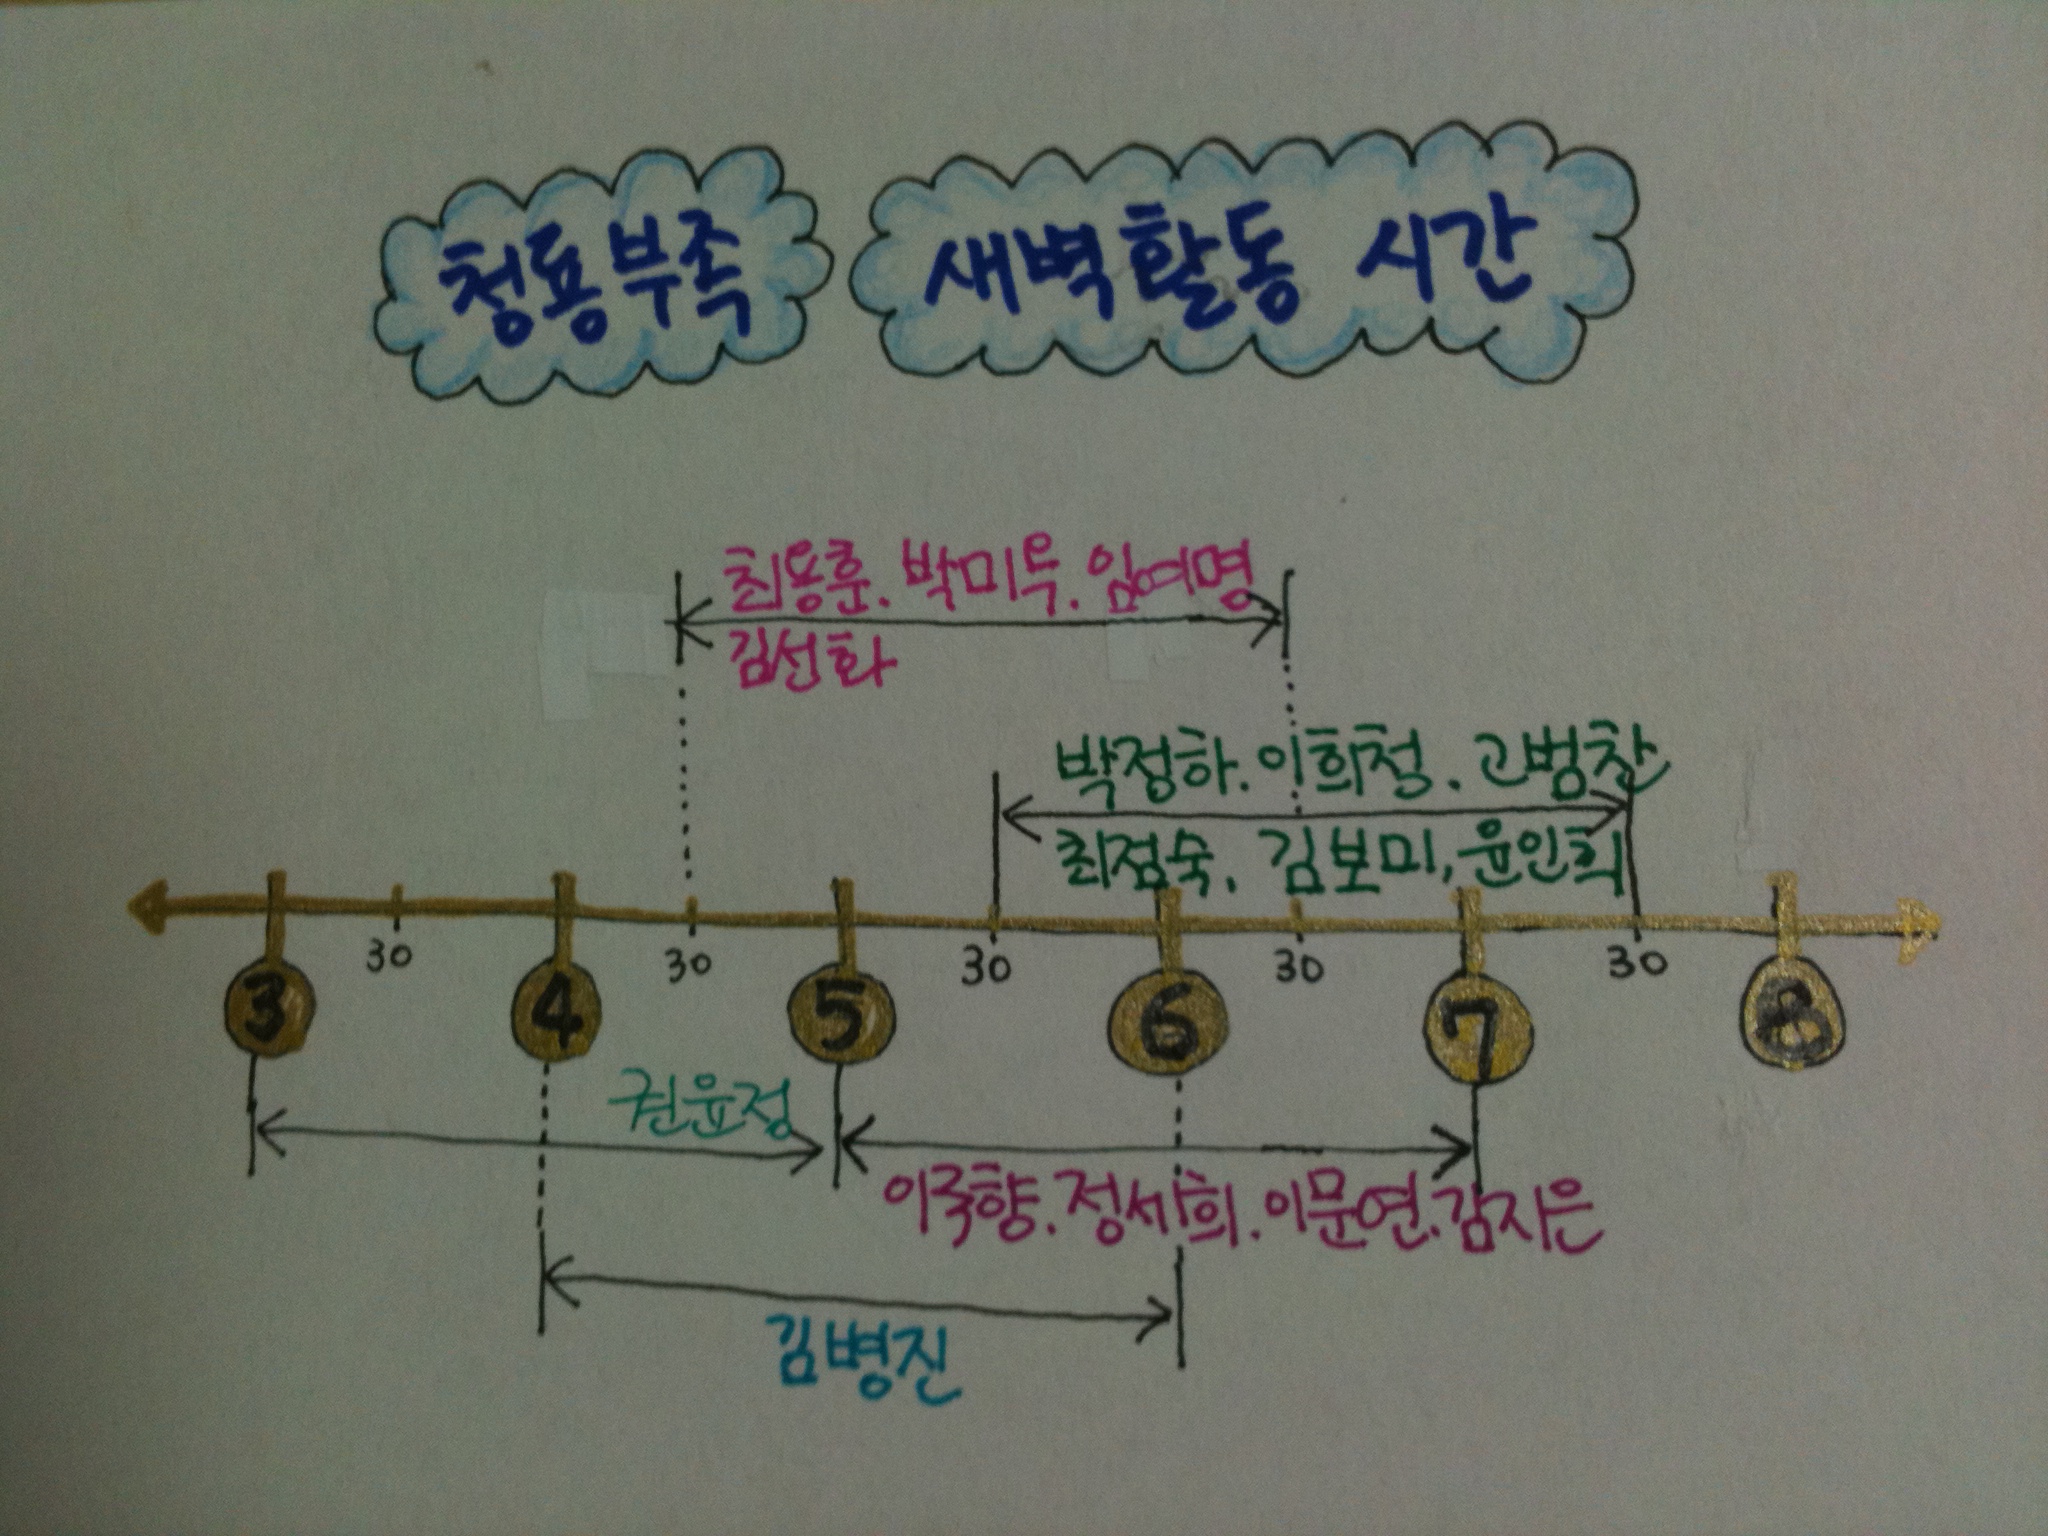 청룡부족 새벽활동 시간
최용훈. 박미루. 임여명
김선화
박정하. 이희철. 고범찬
최점숙, 김보미, 윤인희
30 30 30 30 30
3 4 5 6 7 8
권윤정
이국향. 정세희. 이문연. 김지은
김병진